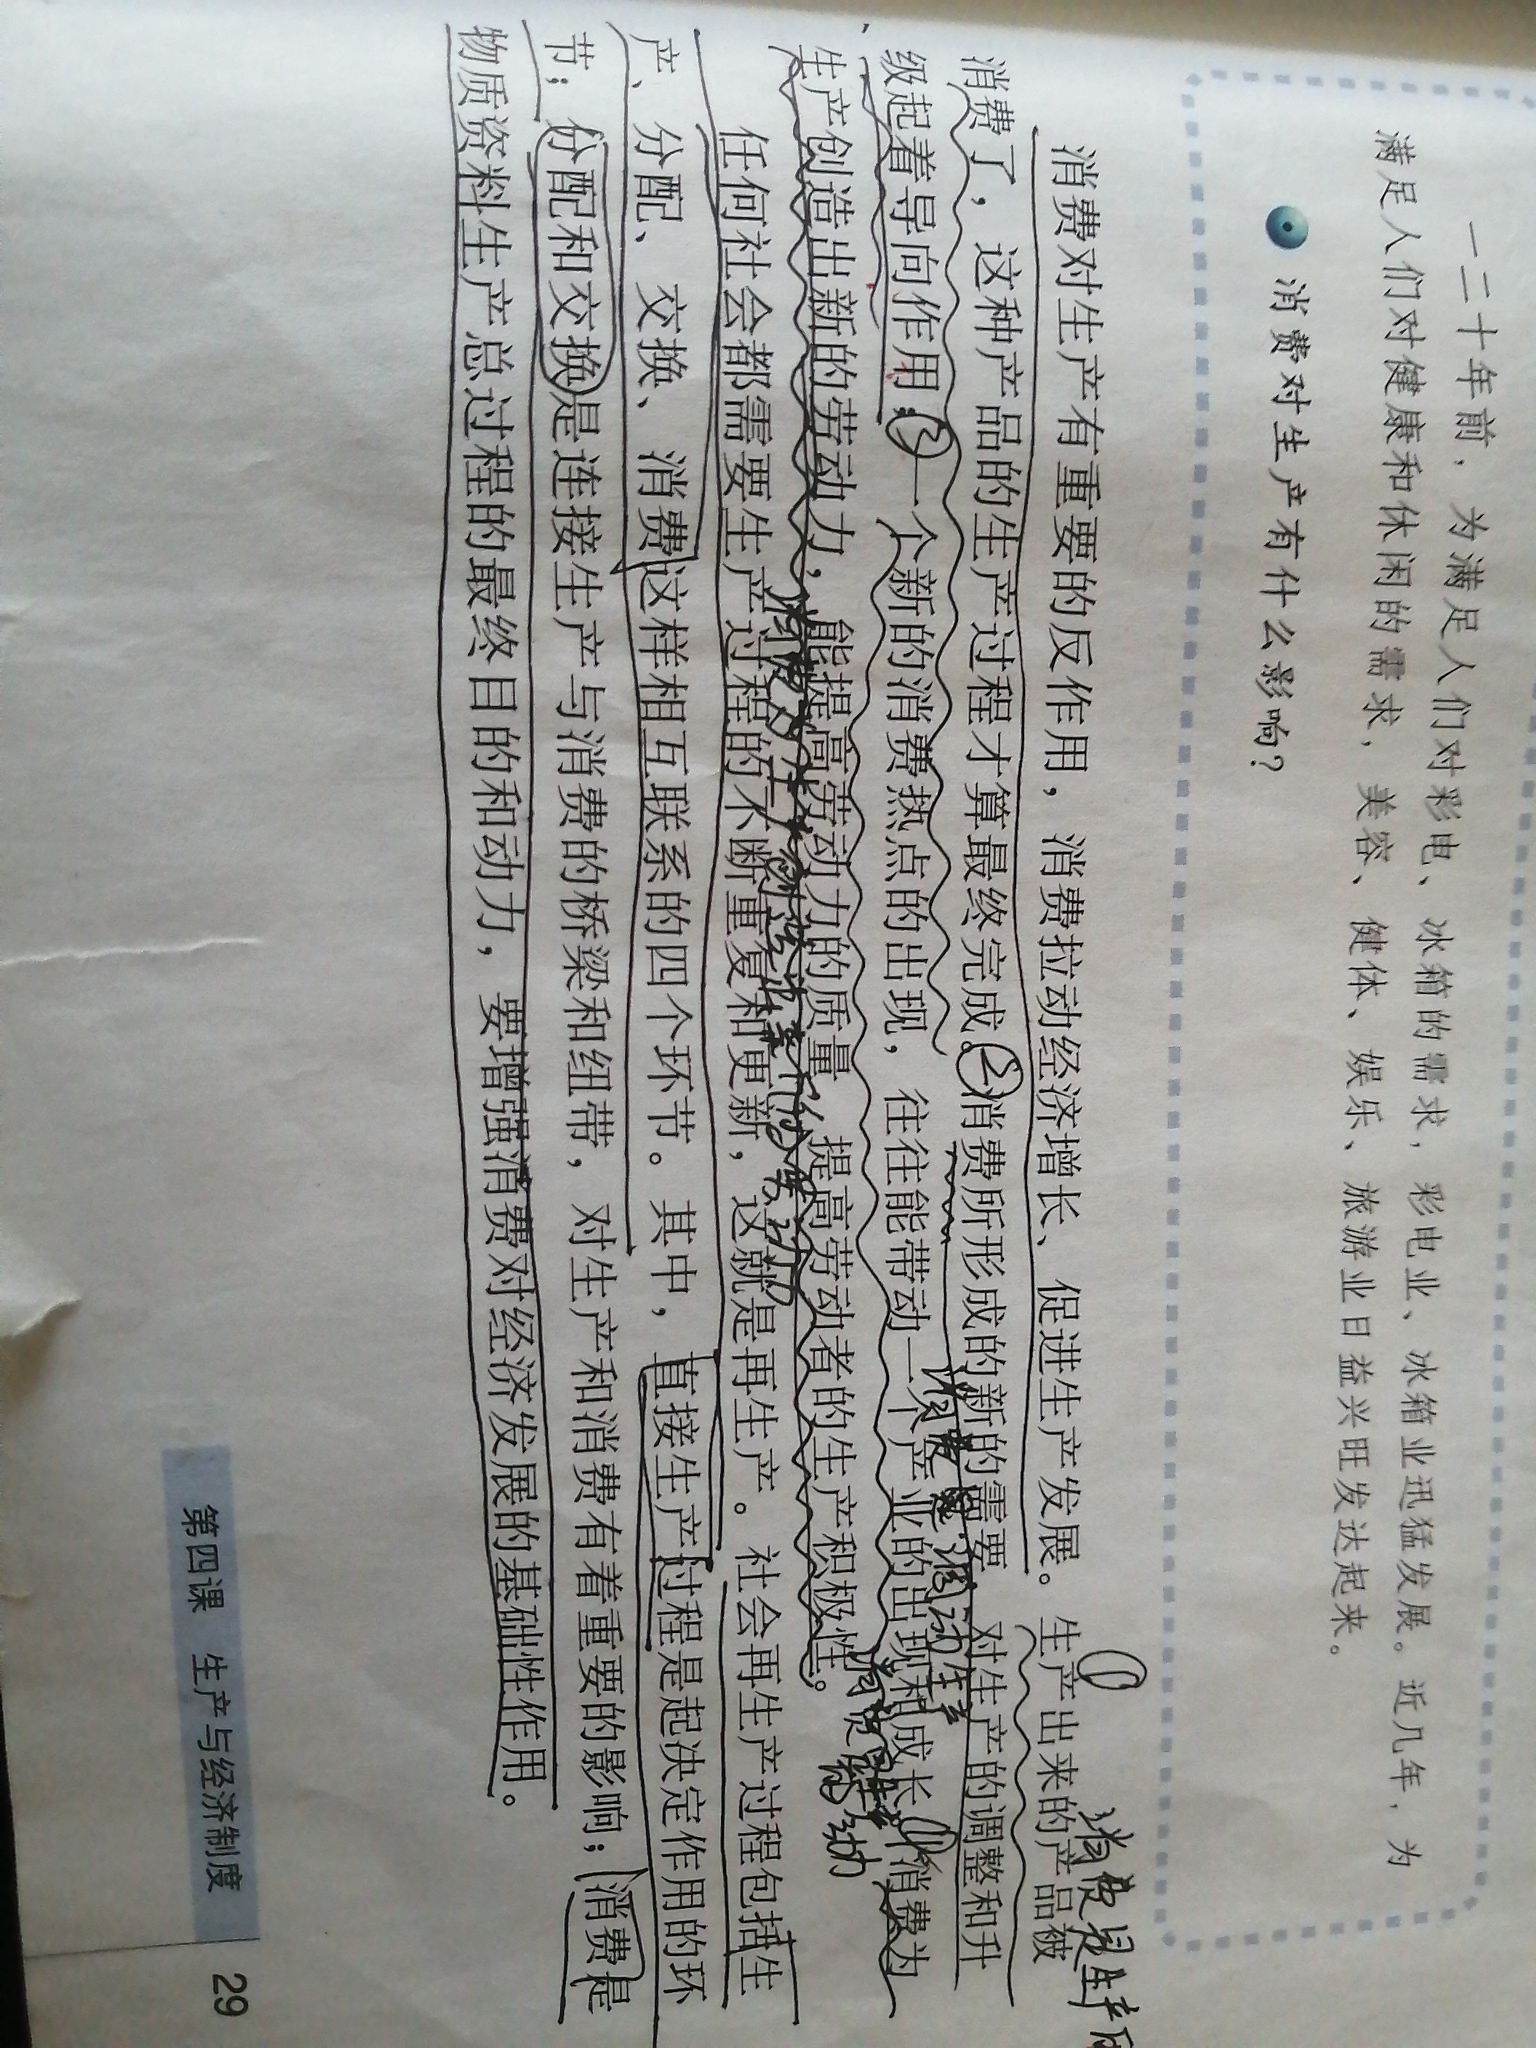 一二十年前，为满足人们对彩电、冰箱的需求，彩电业、冰箱业迅猛发展。近几年，为
满足人们对健康和休闲的需求，美容、健体、娱乐、旅游业日益兴旺发达起来。
消费对生产有什么影响？
消费对生产有重要的反作用，消费拉动经济增长、促进生产发展。生产出来的产品被
① 消费是生产
消费了，这种产品的生产过程才算最终完成。②消费所形成的新的需要 对生产的调整和升
消费 调动生产
级起着导向作用；③一个新的消费热点的出现，往往能带动一个产业的出现和成长。④消费为
消费是 的动力
生产创造出新的劳动力，能提高劳动力的质量，提高劳动者的生产积极性。
任何社会都需要生产过程的不断重复和更新，这就是再生产。社会再生产过程包括生
产、分配、交换、消费这样相互联系的四个环节。其中，直接生产过程是起决定作用的环
节；分配和交换是连接生产与消费的桥梁和纽带，对生产和消费有着重要的影响；消费是
物质资料生产总过程的最终目的和动力，要增强消费对经济发展的基础性作用。
第四课 生产与经济制度 29